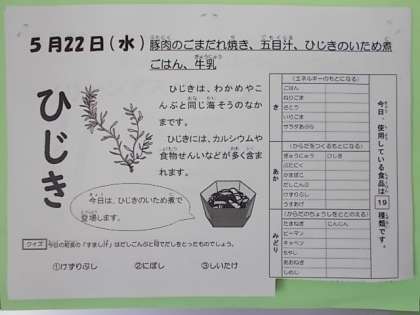 5月22日(水) 豚肉のごまだれ焼き、五目汁、ひじきのいため煮
ごはん、牛乳
ひじき
ひじきは、わかめやこ
んぶと同じ海そうのなか
まです。
ひじきには、カルシウムや
食物せんいなどが多く含ま
れます。
今日は、ひじきのいため煮で
登場します。
クイズ 今日の給食の「すまし汁」はだしこんぶと何でだしをとったものでしょう。
①けずりぶし ②にぼし ③しいたけ
今日、使用している食品は
19
種類です。
き
(エネルギーのもとになる)
ごはん
ねりごま
さとう
いりごま
サラダあぶら
あか
(からだをつくるもとになる)
ぎゅうにゅう ひじき
ぶたにく
かまぼこ
だしこんぶ
けずりぶし
うすあげ
みどり
(からだのちょうしをととのえる)
たまねぎ にんじん
ピーマン
キャベツ
もやし
あおねぎ
しめじ